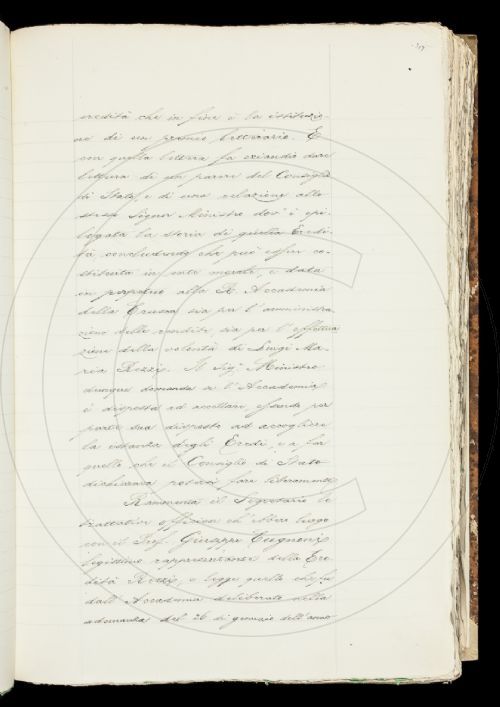 eredità che in fine è la istituzio-
ne di un premio letterario. E
con quella lettera fa eziandio dare
lettura di un parere del Consiglio
di Stato, e di una relazione allo
stesso Signor Ministro dov'è epi-
logata la storia di quella Eredi-
tà concludendo che può essere co-
stituita in ente morale, e data
in perpetuo alla R. Accademia
della Crusca sia per l'amministra
zione delle rendite sia per l'effettua
zione della volontà di Luigi Ma-
ria Rezzi. Il Sig. Ministro
dunque domanda se l'Accademia
è disposta ad accettare, essendo per
parte sua disposto ad accogliere
la istanza degli Eredi, e a far
quello che il Consiglio di Stato
dichiarava potersi fare liberamente
Rammenta il Segretario le
trattative officiose ch'ebbero luogo
con il Prof. Giuseppe Cugnoni
legittimo rappresentante della Ere
dità Rezzi, e legge quello che fu
dall'Accademia deliberato nella
adunanza del 26 di gennaio dell'anno